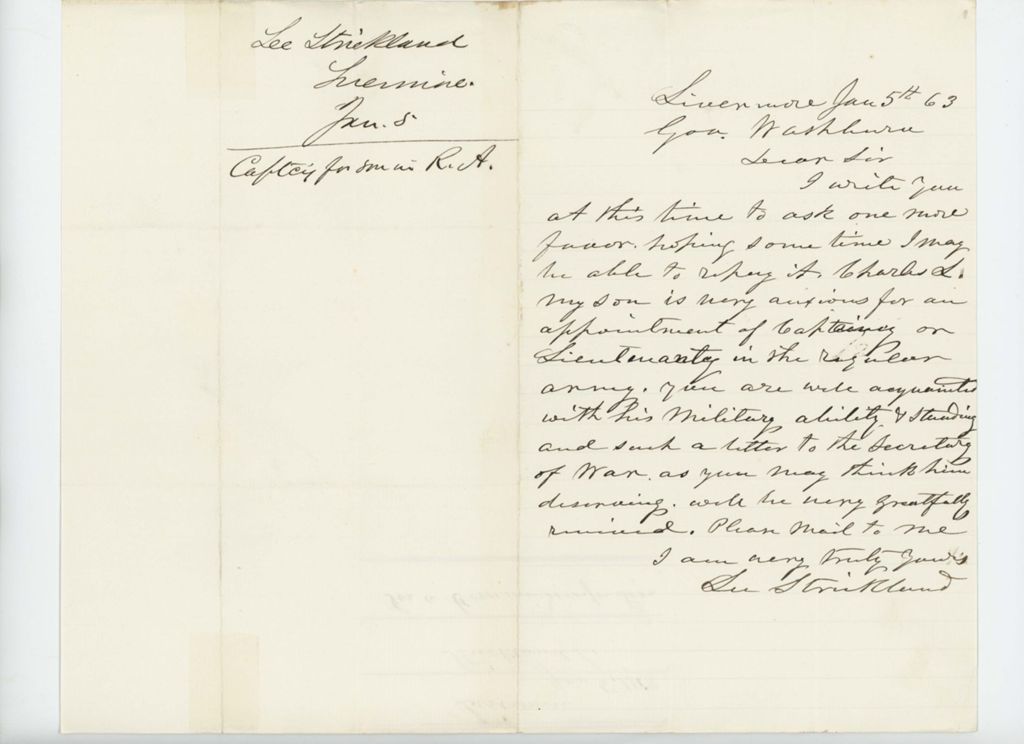 Lee Strickland
Livermore.
Jan. 5
Captcy for son in R.A.
Livermore Jan 5th 63
Gov. Washburn
Dear Sir
I write you
at this time to ask one more
favor. hoping some time I may
be able to repay it. Charles L.
my son is very anxious for an
appointment of Captaincy or
Lieutenantcy in the regular
army. you are well acquainted
with his Military ability & standing
and such a letter to the Secretary
of War. as you may think him
deserving. will be very greatfully
received. Please Mail to me
I am very truly yours
Lee Strickland